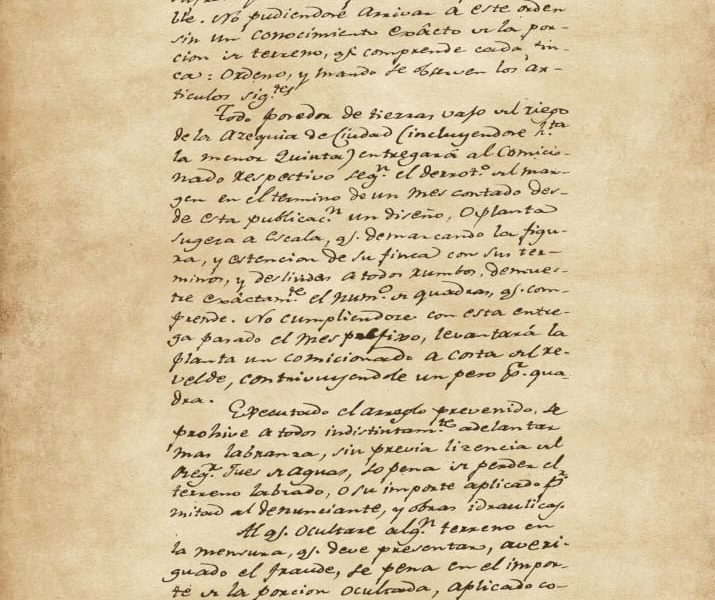 ble. No pudiendore Arrivar á este orden
sin un conocimiento exácto de la por-
cion de terreno, qᵉ. comprende cada fin-
ca: Ordeno, y mando se observen los ar-
ticulos sig.ᵗᵉˢ
Todo poredor de tierras vajo del riego
de la Azequia de Ciudad (incluyendore h.ᵗᵃ
la menor Quinta) entregará al Comicio-
nado respectivo seg.ⁿ el derrot.º del mar-
gen en el termino de un mes contado des-
de esta publicac.ⁿ un diseño, o planta
sugera a Escala, qᵉ. demarcando la figu-
ra, y estencion de su finca con sus ter-
minos, y deslindes a todos rumbos, demues-
tre exáctam.ᵗᵉ el Num.º de quadras, qᵉ. com-
prende. No cumpliendore con esta entre-
ga parado el mes prefixo, levantará la
planta un comicionado a corta del re-
velde, contrivuyendole un pero p.ʳ qua-
dra.
Executado el arreglo prevenido, se
prohive a todos indistintam.ᵗᵉ adelantar
mas labranza, sin previa licencia del
Reg.ʳ Jues de Aguas, so pena de perder el
terreno labrado, o su importe aplicado p.ʳ
mitad al denunciante, y obras idraulicas.
Al qᵉ. ocultare alg.ⁿ terreno en
la mensura, qᵉ. deve presentar, averi-
guado el fraude, se pena en el impor-
te de la porcion ocultada, aplicado co-